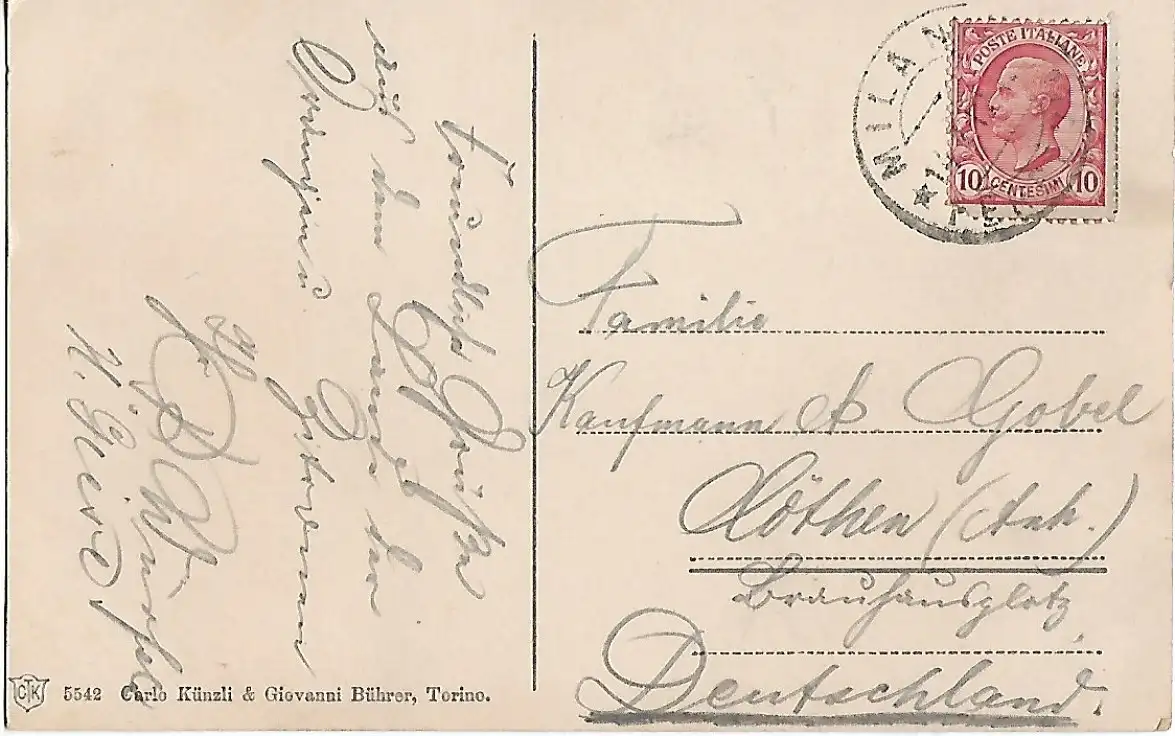 Freundliche Grüße
aus dem Lande der
Orangen u Zitronen
H. Giers
MILANO
POSTE ITALIANE
10 CENTESIMI 10
Familie
Kaufmann A. Gobel
Cöthen (Anh.)
Brauhausplatz
Deutschland.
CTK 5542 Carlo Künzli & Giovanni Bührer, Torino.